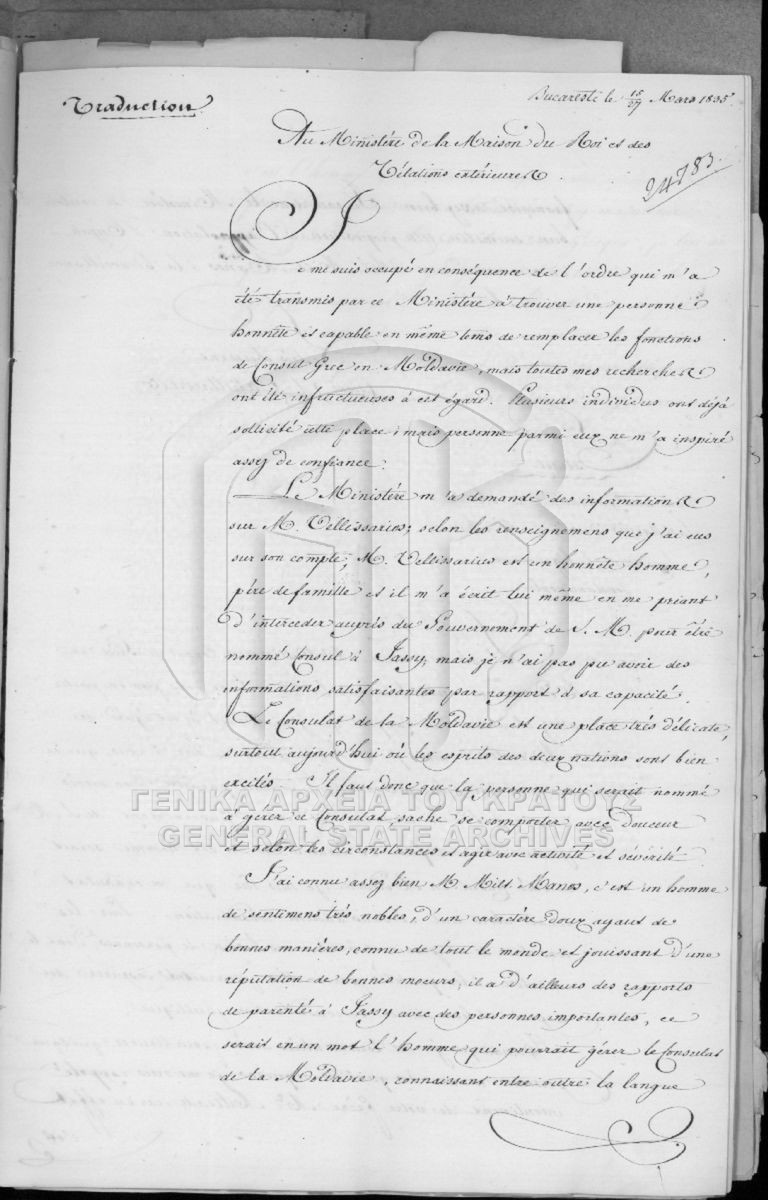 Traduction
Bucarest le 15/27 Mars 1835.
Au Ministère de la Maison du Roi et des
Rélations extérieures.
24783.
Je me suis occupé en conséquence de l'ordre qui m'a
été transmis par ce Ministère à trouver une personne
honnête et capable en même tems de remplacer les fonctions
de Consul Grec en Moldavie, mais toutes mes recherches
ont été infructueuses à cet égard. Plusieurs individus ont déjà
sollicité cette place; mais personne parmi eux ne m'a inspiré
assez de confiance.
Le Ministère m'a demandé des informations
sur M. Vellissarius; selon les renseignemens que j'ai eus
sur son compte, M. Vellissarius est un honnête homme,
père de famille et il m'a écrit lui même en me priant
d'interceder auprès du Gouvernement de S. M. pour être
nommé Consul à Jassy, mais je n'ai pas pu avoir des
informations satisfaisantes par rapport à sa capacité.
Le Consulat de la Moldavie est une place très délicate,
surtout aujourd'hui où les esprits des deux nations sont bien
excités. Il faut donc que la personne qui serait nommé
à gérer ce Consulat sache se comporter avec douceur
et selon les circonstances et agir avec activité et sévérité.
J'ai connu assez bien M. Milt. Manos, c'est un homme
de sentimens très nobles, d'un caractère doux ayant de
bonnes manières, connu de tout le monde et jouissant d'une
réputation de bonnes moeurs, il a d'ailleurs des rapports
de parenté à Jassy avec des personnes importantes, ce
serait en un mot l'homme qui pourrait gérer le Consulat
de la Moldavie, connaissant entre outre la langue
ΓΕΝΙΚΑ ΑΡΧΕΙΑ ΤΟΥ ΚΡΑΤΟΥΣ
GENERAL STATE ARCHIVES